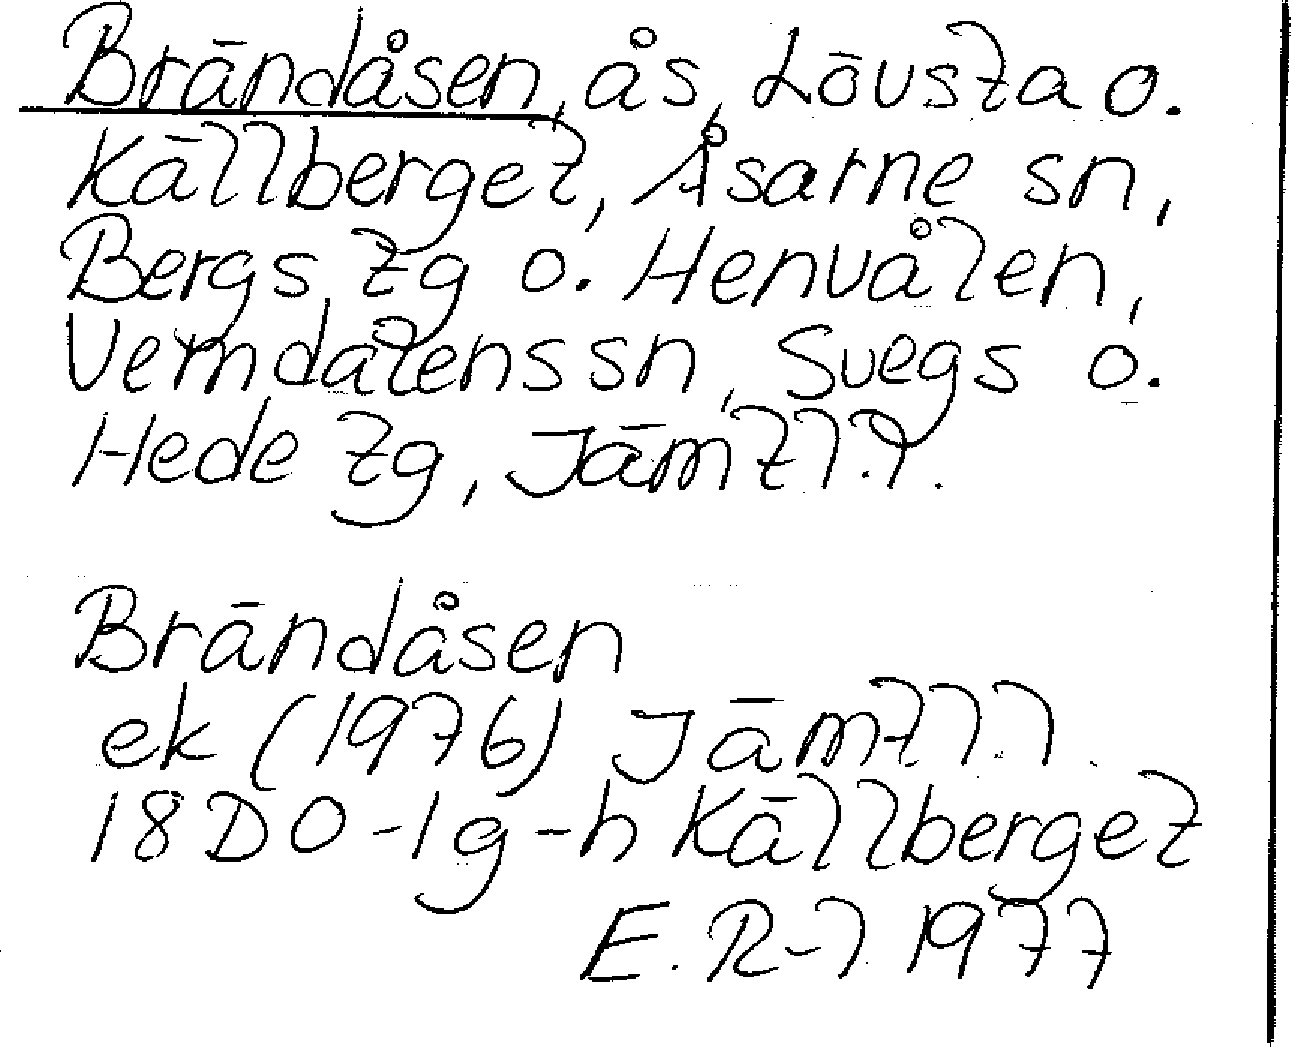 Brändåsen, ås, Lövsta o.
Källberget, Åsarne sn,
Bergs tg o. Henvålen,
Vemdalens sn, Svegs o.
Hede tg, Jämtl.l.
Brändåsen
ek (1976) Jämtl.l.
18D 0-1g-h Källberget
E. R-l 1977